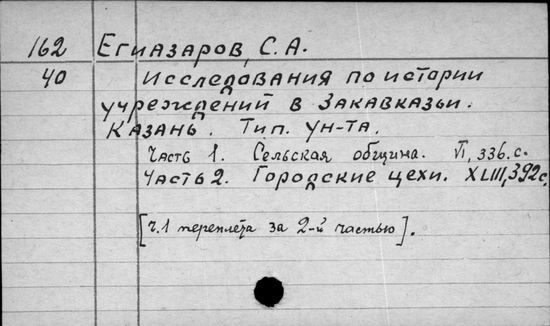 162 Егиазаров, С. А.
40 Исследования по истории
учреждений в Закавказьи.
Казань. Тип. ун-та.
Часть 1. Сельская община. VI, 336 с.
Часть 2. Городские цехи. XLIII, 392 с.
[ч.1 переплета за 2-й частью].